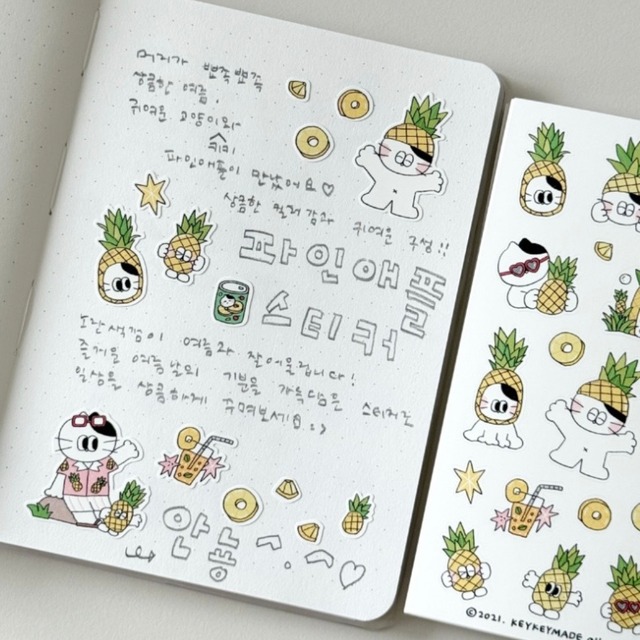 머리가 뾰족뾰족
상큼한 여름,
귀여운 고양이와
키키
파인애플이 만났어요♡
상큼한 컬러감과 귀여운 구성!!
파인애플
스티커
노란색감이 여름과 잘어울립니다!
즐거운 여름날의 기분을 가득담은 스티커로
일상을 상큼하게 꾸며보세요:)
안뇽 ^.^♡
©2021. KEYKEYMADE